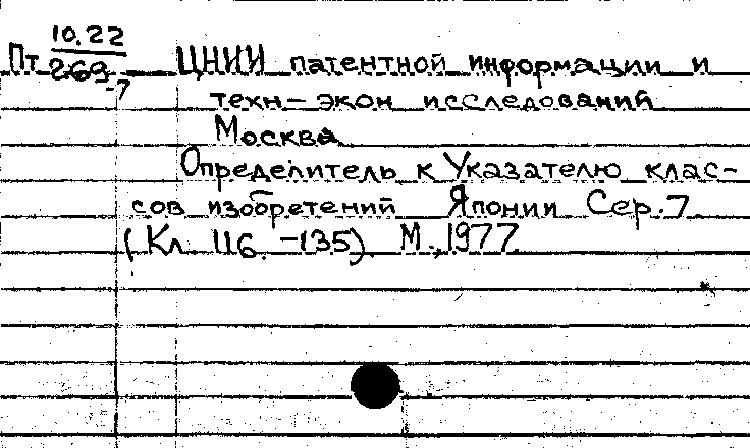 10.22
Пт 269-7 ЦНИИ патентной информации и
техн-экон исследований
Москва
Определитель к Указателю клас-
сов изобретений Японии Сер. 7
(Кл. 116. -135). М., 1977